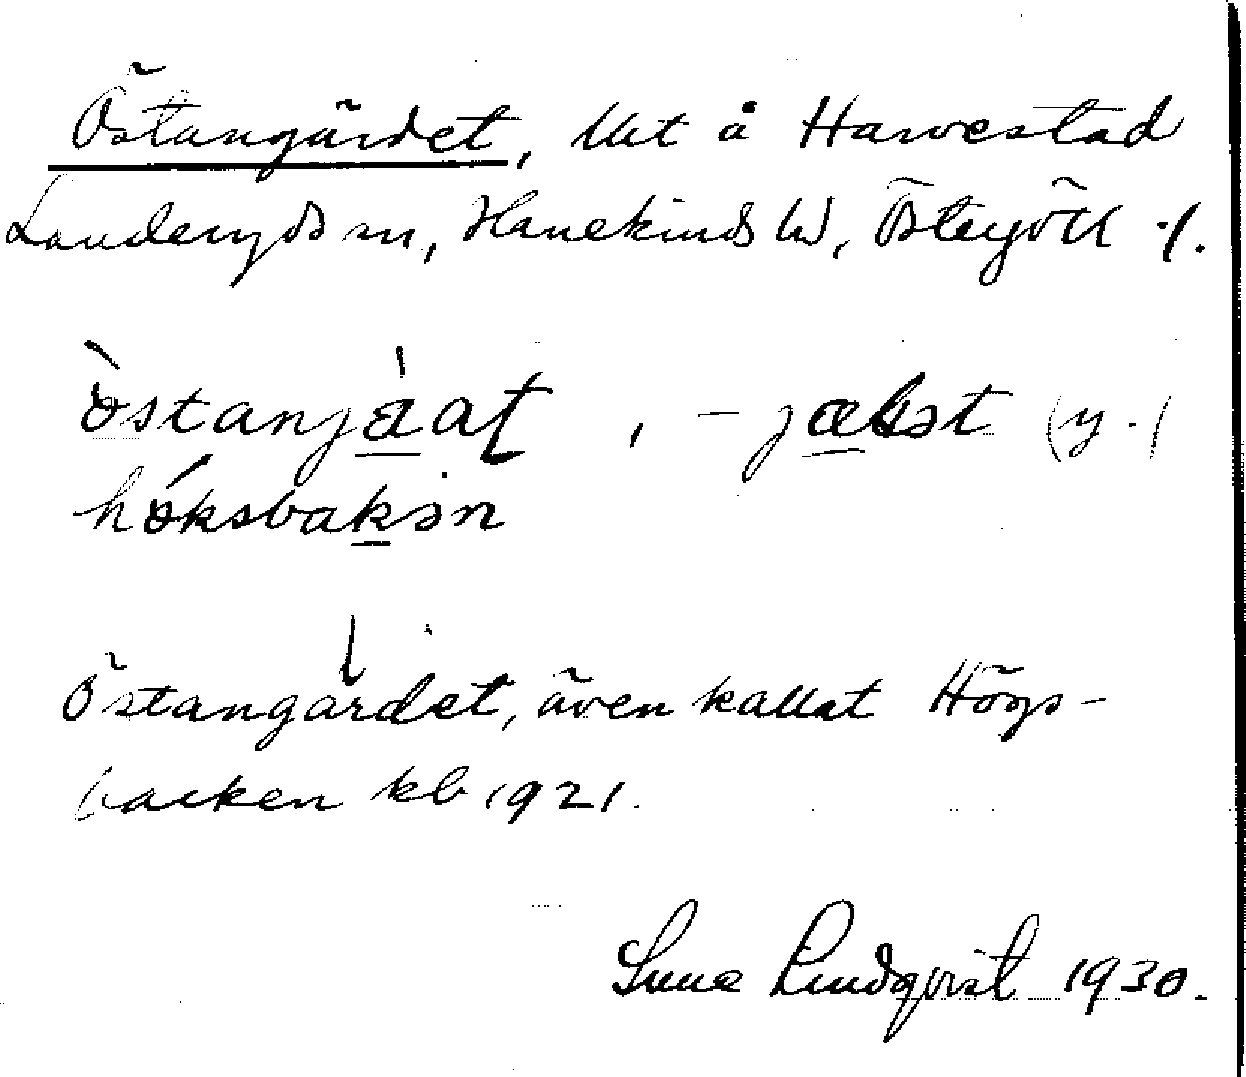 Östangärdet, lht å Harvestad
Landeryds sn, Hanekinds hd, Östergötl. l.
östanjäat, -jæləst (y.)
höksbakən
Östangärdet, även kallat Högs-
backen kb 1921.
Sune Lindqvist 1930.